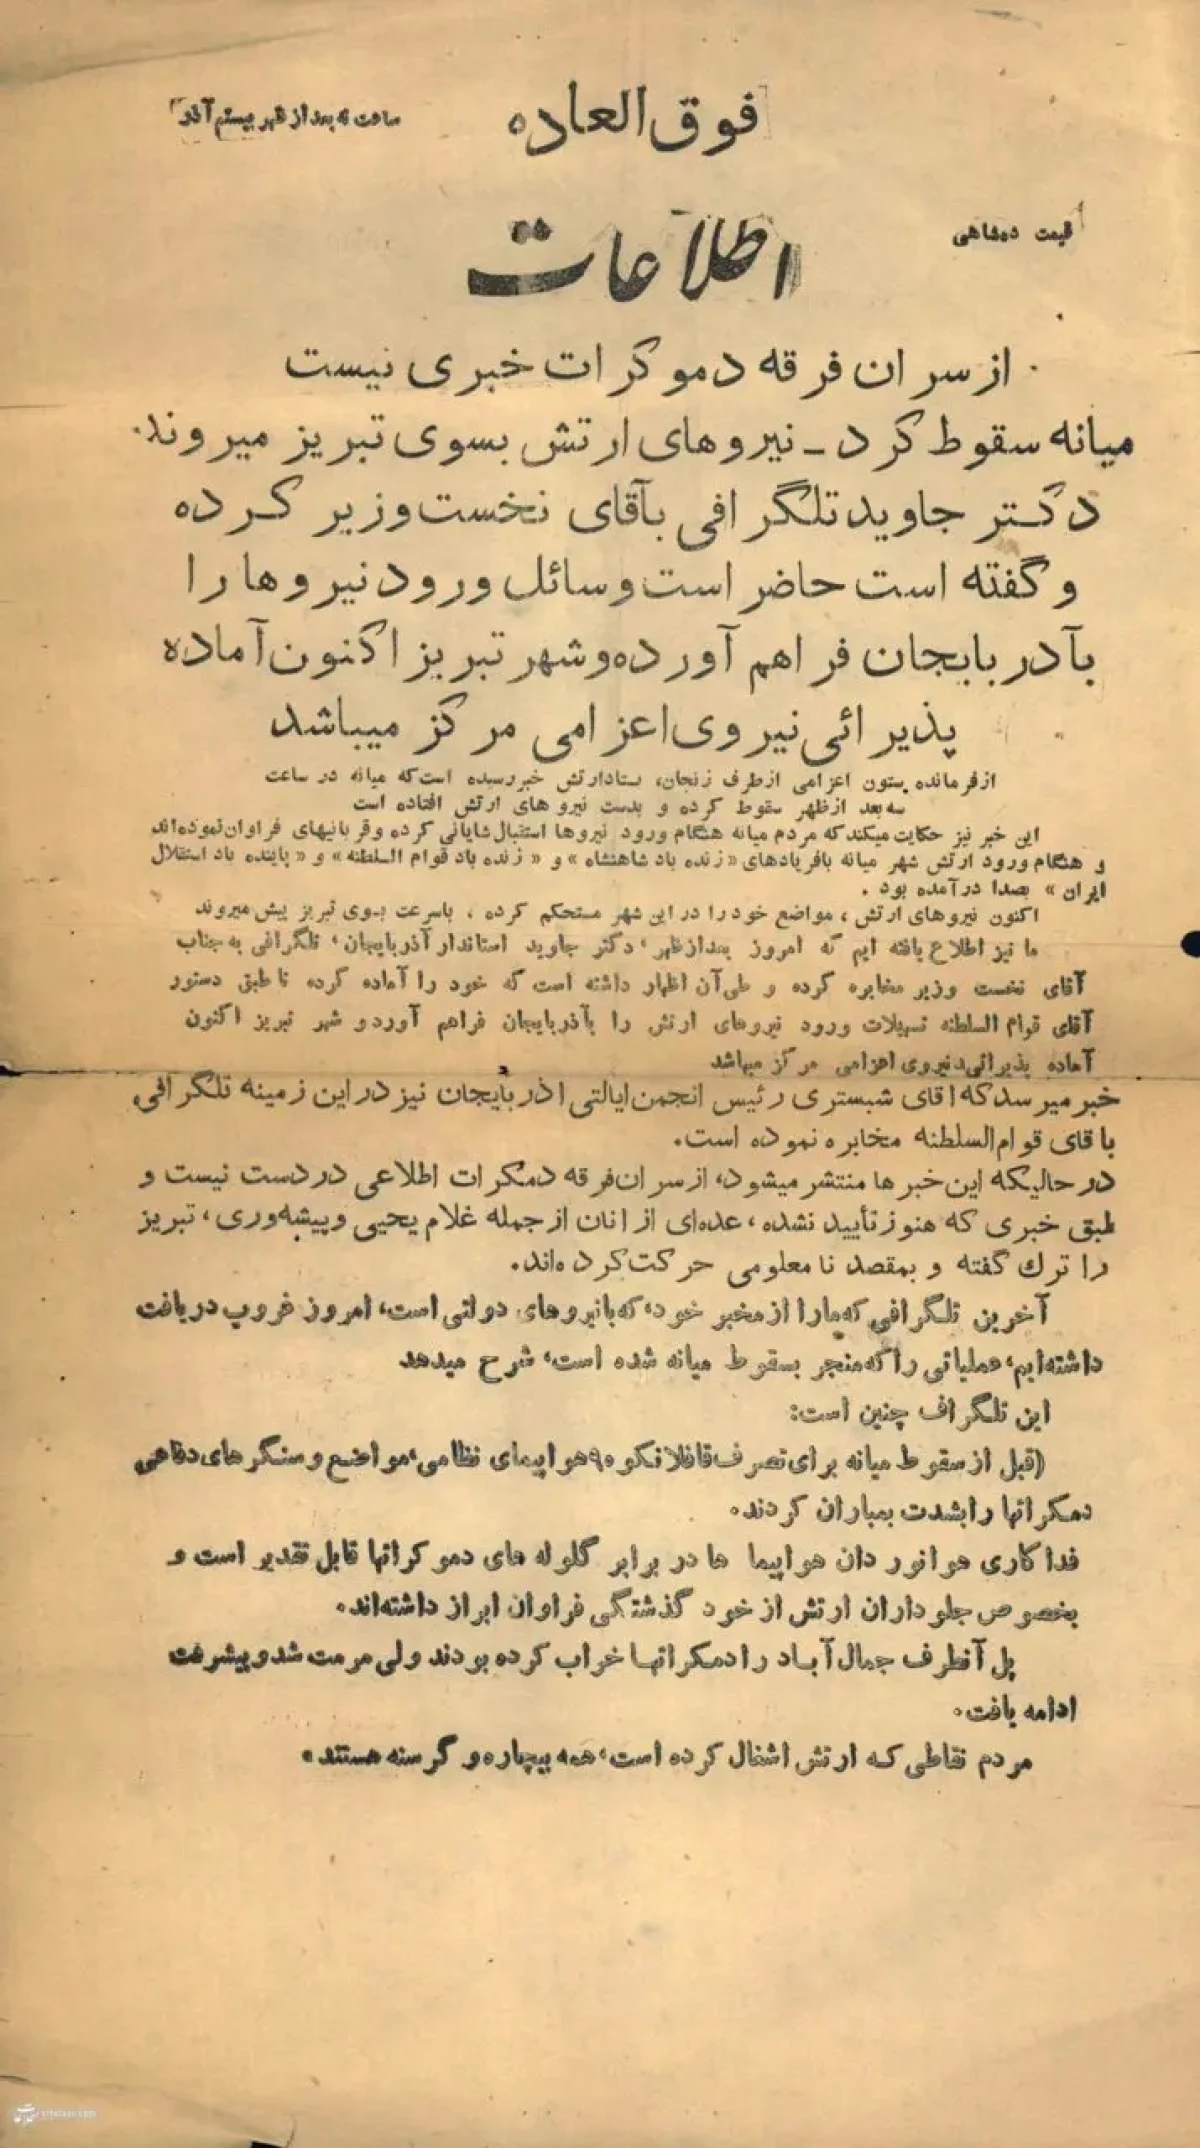 فوق العاده
ساعت نه بعد از ظهر بیستم آذر
قیمت ده شاهی
اطلاعات
از سران فرقه دموکرات خبری نیست
میانه سقوط کرد - نیروهای ارتش بسوی تبریز میروند.
دکتر جاوید تلگرافی بآقای نخست وزیر کرده
و گفته است حاضر است وسائل ورود نیروها را
بآذربایجان فراهم آورده و شهر تبریز اکنون آماده
پذیرائی نیروی اعزامی مرکز میباشد
از فرمانده ستون اعزامی از طرف زنجان، بستاد ارتش خبر رسیده است که میانه در ساعت
سه بعد از ظهر سقوط کرده و بدست نیروهای ارتش افتاده است
این خبر نیز حکایت میکند که مردم میانه هنگام ورود نیروها استقبال شایانی کرده و قربانیهای فراوان نموده‌اند
و هنگام ورود ارتش شهر میانه بافریادهای «زنده باد شاهنشاه» و «زنده باد قوام السلطنه» و «پاینده باد استقلال
ایران» بصدا درآمده بود.
اکنون نیروهای ارتش، مواضع خود را در این شهر مستحکم کرده، باسرعت بسوی تبریز پیش میروند
ما نیز اطلاع یافته ایم که امروز بعدازظهر، دکتر جاوید استاندار آذربایجان، تلگرافی به جناب
آقای نخست وزیر مخابره کرده و طی آن اظهار داشته است که خود را آماده کرده تا طبق دستور
آقای قوام السلطنه تسهیلات ورود نیروهای ارتش را بآذربایجان فراهم آورد و شهر تبریز اکنون
آماده پذیرائی نیروی اعزامی مرکز میباشد
خبر میرسد که اقای شبستری رئیس انجمن ایالتی اذربایجان نیز در این زمینه تلگرافی
باقای قوام السلطنه مخابره نموده است.
در حالیکه این خبرها منتشر میشود، از سران فرقه دمکرات اطلاعی در دست نیست و
طبق خبری که هنوز تأیید نشده، عده‌ای از انان از جمله غلام یحیی و پیشه‌وری، تبریز
را ترك گفته و بمقصد نامعلومی حرکت کرده‌اند.
آخرین تلگرافی که ما را از مخبر خود، که با نیروهای دولتی است، امروز غروب دریافت
داشته‌ایم، عملیاتی را که منجر بسقوط میانه شده است، شرح میدهد
این تلگراف چنین است:
(قبل از سقوط میانه برای تصرف قافلانکوه ۹ هواپیمای نظامی، مواضع و سنگرهای دفاعی
دمکراتها را بشدت بمباران کردند.
فداکاری هوانوردان هواپیما ها در برابر گلوله های دموکراتها قابل تقدیر است و
بخصوص جلوداران ارتش از خود گذشتگی فراوان ابراز داشته‌اند.
پل آنطرف جمال آباد را دمکراتها خراب کرده بودند ولی مرمت شد و پیشرفت
ادامه یافت.
مردم نقاطی که ارتش اشغال کرده است، همه بیچاره و گرسنه هستند»